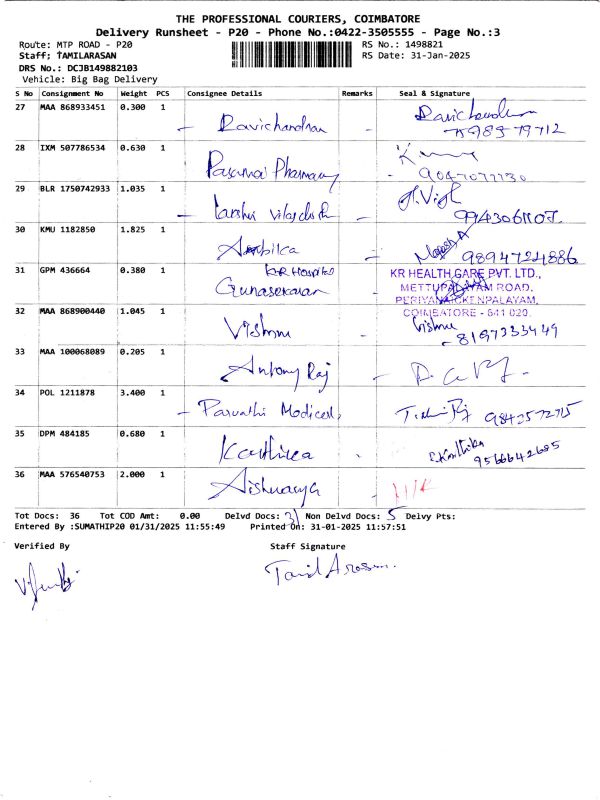 THE PROFESSIONAL COURIERS, COIMBATORE
Delivery Runsheet - P20 - Phone No.:0422-3505555 - Page No.:3
Route: MTP ROAD - P20
RS No.: 1498821
Staff; TAMILARASAN
RS Date: 31-Jan-2025
DRS No.: DCJB149882103
Vehicle: Big Bag Delivery
S No Consignment No Weight PCS Consignee Details Remarks Seal & Signature
27 MAA 868933451 0.300 1 - Ravichandran - Ravichandran
28 IXM 507786534 0.630 1 Pharmacy -
29 BLR 1750742933 1.035 1 -
30 KMU 1182850 1.825 1 Ambika - 9894724886
31 GPM 436664 0.380 1 KR Hospital
Gunasekaran
KR HEALTH CARE PVT. LTD.,
METTUPALAYAM ROAD,
PERIYANAICKENPALAYAM,
COIMBATORE - 641 020.
32 MAA 868900440 1.045 1 Vishnu - Vishnu
- 8197333449
33 MAA 100068089 0.205 1 Antony Raj -
34 POL 1211878 3.400 1 - Parvathi Medical,
35 DPM 484185 0.680 1 Karthika - Karthika
9566642685
36 MAA 576540753 2.000 1 Aishwarya -
Tot Docs: 36 Tot COD Amt: 0.00 Delvd Docs: 31 Non Delvd Docs: 5 Delvy Pts:
Entered By :SUMATHIP20 01/31/2025 11:55:49 Printed On: 31-01-2025 11:57:51
Verified By Staff Signature
Tamil Arasan.